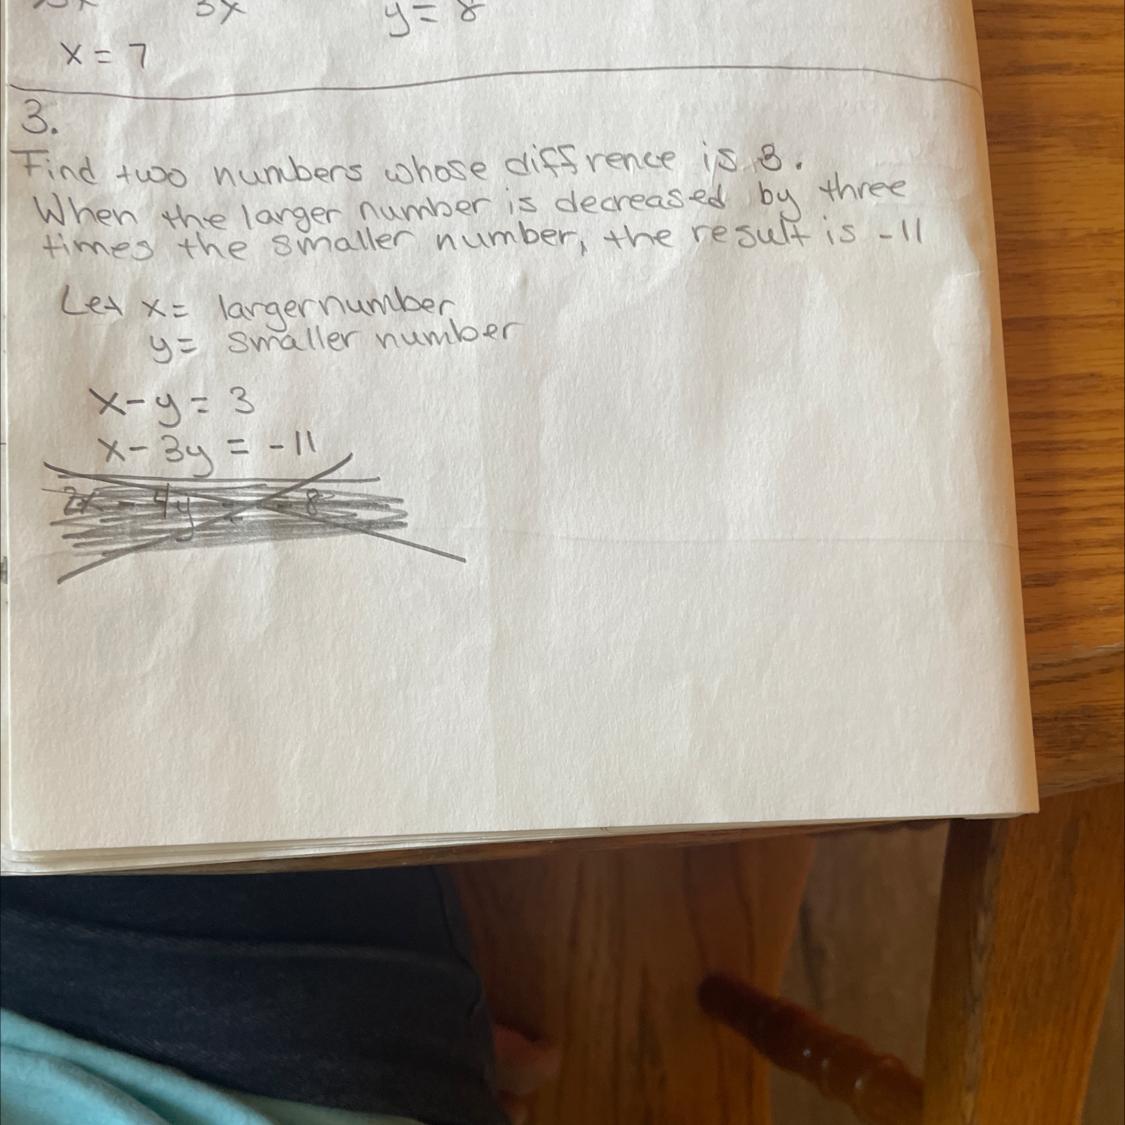 3x
y = 8
x = 7
3.
Find two numbers whose diffrence is 3.
When the larger number is decreased by three
times the smaller number, the result is -11
Let x = larger number
y = smaller number
x - y = 3
x - 3y = -11
2x - 4y = -8